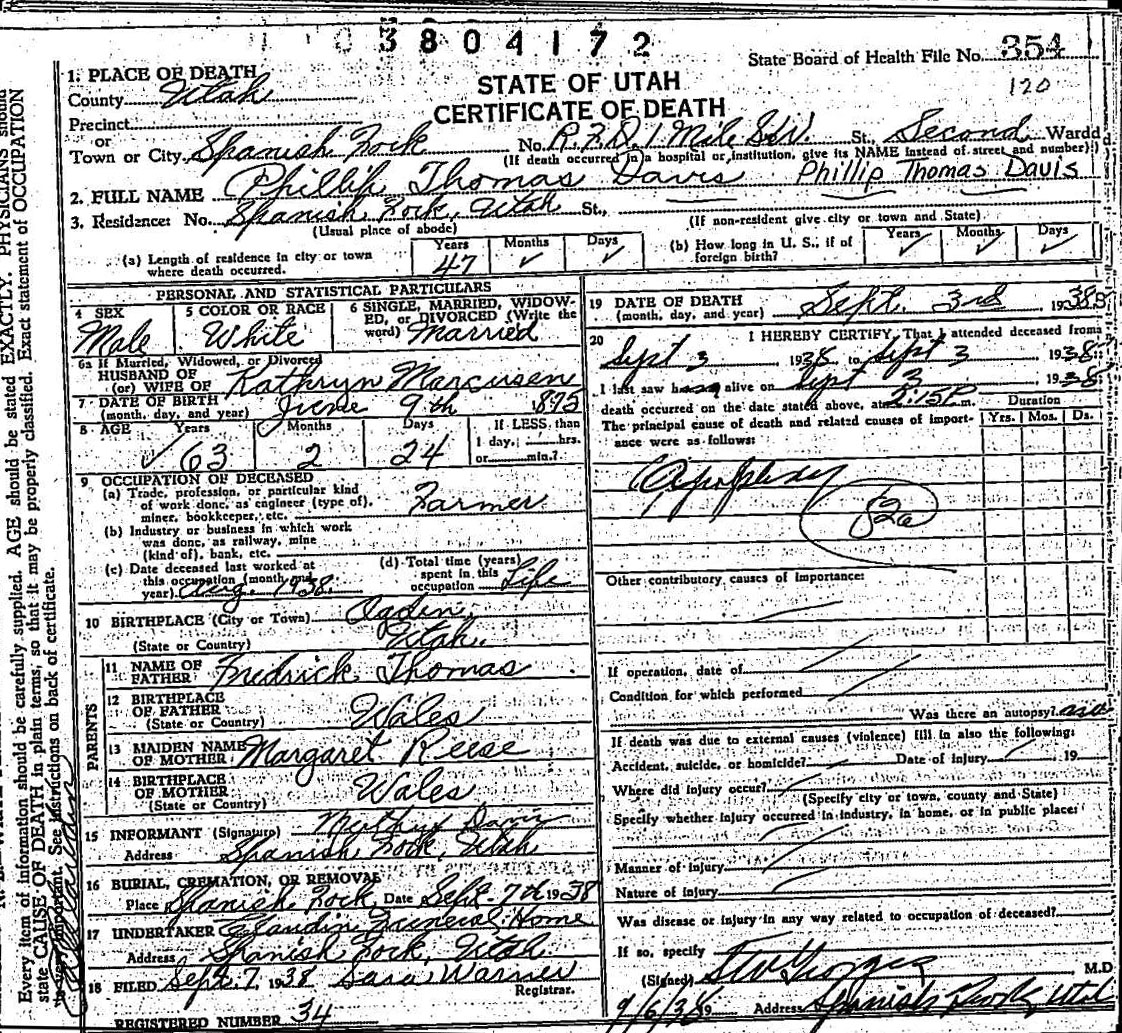 3804172
State Board of Health File No. 354
120
STATE OF UTAH
CERTIFICATE OF DEATH
1. PLACE OF DEATH
County Utah
Precinct
or
Town or City Spanish Fork No. R.F.D. 1 Mile S.W. St., Second Ward
(If death occurred in a hospital or institution, give its NAME instead of street and number)
2. FULL NAME Phillip Thomas Davis Phillip Thomas Davis
3. Residence: No. Spanish Fork, Utah St.,
(Usual place of abode) (If non-resident give city or town and State)
(a) Length of residence in city or town where death occurred. Years 47 Months ✓ Days ✓
(b) How long in U. S., if of foreign birth? Years ✓ Months ✓ Days ✓
PERSONAL AND STATISTICAL PARTICULARS
4 SEX Male
5 COLOR OR RACE White
6 SINGLE, MARRIED, WIDOWED, or DIVORCED (Write the word) Married
6a If Married, Widowed, or Divorced
HUSBAND OF
(or) WIFE OF Kathryn Marcusen
7 DATE OF BIRTH
(month, day, and year) June 9th 1875
8 AGE Years 63 Months 2 Days 24
If LESS than
1 day, hrs.
or min.?
9 OCCUPATION OF DECEASED
(a) Trade, profession, or particular kind
of work done, as engineer (type of), Farmer
miner, bookkeeper, etc.
(b) Industry or business in which work
was done, as railway, mine
(kind of), bank, etc.
(c) Date deceased last worked at
this occupation (month and
year) Aug. 1938.
(d) Total time (years)
spent in this
occupation Life
10 BIRTHPLACE (City or Town) Ogden,
(State or Country) Utah.
PARENTS
11 NAME OF
FATHER Fredrick Thomas
12 BIRTHPLACE
OF FATHER Wales
(State or Country)
13 MAIDEN NAME
OF MOTHER Margaret Reese
14 BIRTHPLACE
OF MOTHER Wales
(State or Country)
15 INFORMANT (Signature) Davis
Address Spanish Fork, Utah
16 BURIAL, CREMATION, OR REMOVAL
Place Spanish Fork Date Sept. 7th 1938
17 UNDERTAKER Claudin Funeral Home
Address Spanish Fork, Utah
18 FILED Sept. 7, 1938 Sara Warner
Registrar.
REGISTERED NUMBER 34
19 DATE OF DEATH
(month, day, and year) Sept. 3rd 1938
20 I HEREBY CERTIFY, That I attended deceased from
Sept 3 1938 to Sept 3 1938
I last saw h alive on Sept 3 1938
death occurred on the date stated above, at 2:15 P.m.
The principal cause of death and related causes of importance were as follows:
Duration
Yrs. Mos. Ds.
Apoplexy
82a
Other contributory causes of importance:
If operation, date of
Condition for which performed
Was there an autopsy? no
If death was due to external causes (violence) fill in also the following:
Accident, suicide, or homicide? Date of injury 19
Where did injury occur?
(Specify city or town, county and State)
Specify whether injury occurred in industry, in home, or in public place:
Manner of injury
Nature of injury
Was disease or injury in any way related to occupation of deceased?
If so, specify
(Signed) M.D
9/6/38 19 Address Spanish Fork, Utah
Every item of information should be carefully supplied. AGE should be stated EXACTLY. PHYSICIANS should
state CAUSE OF DEATH in plain terms, so that it may be properly classified. Exact statement of OCCUPATION
important. See instructions on back of certificate.